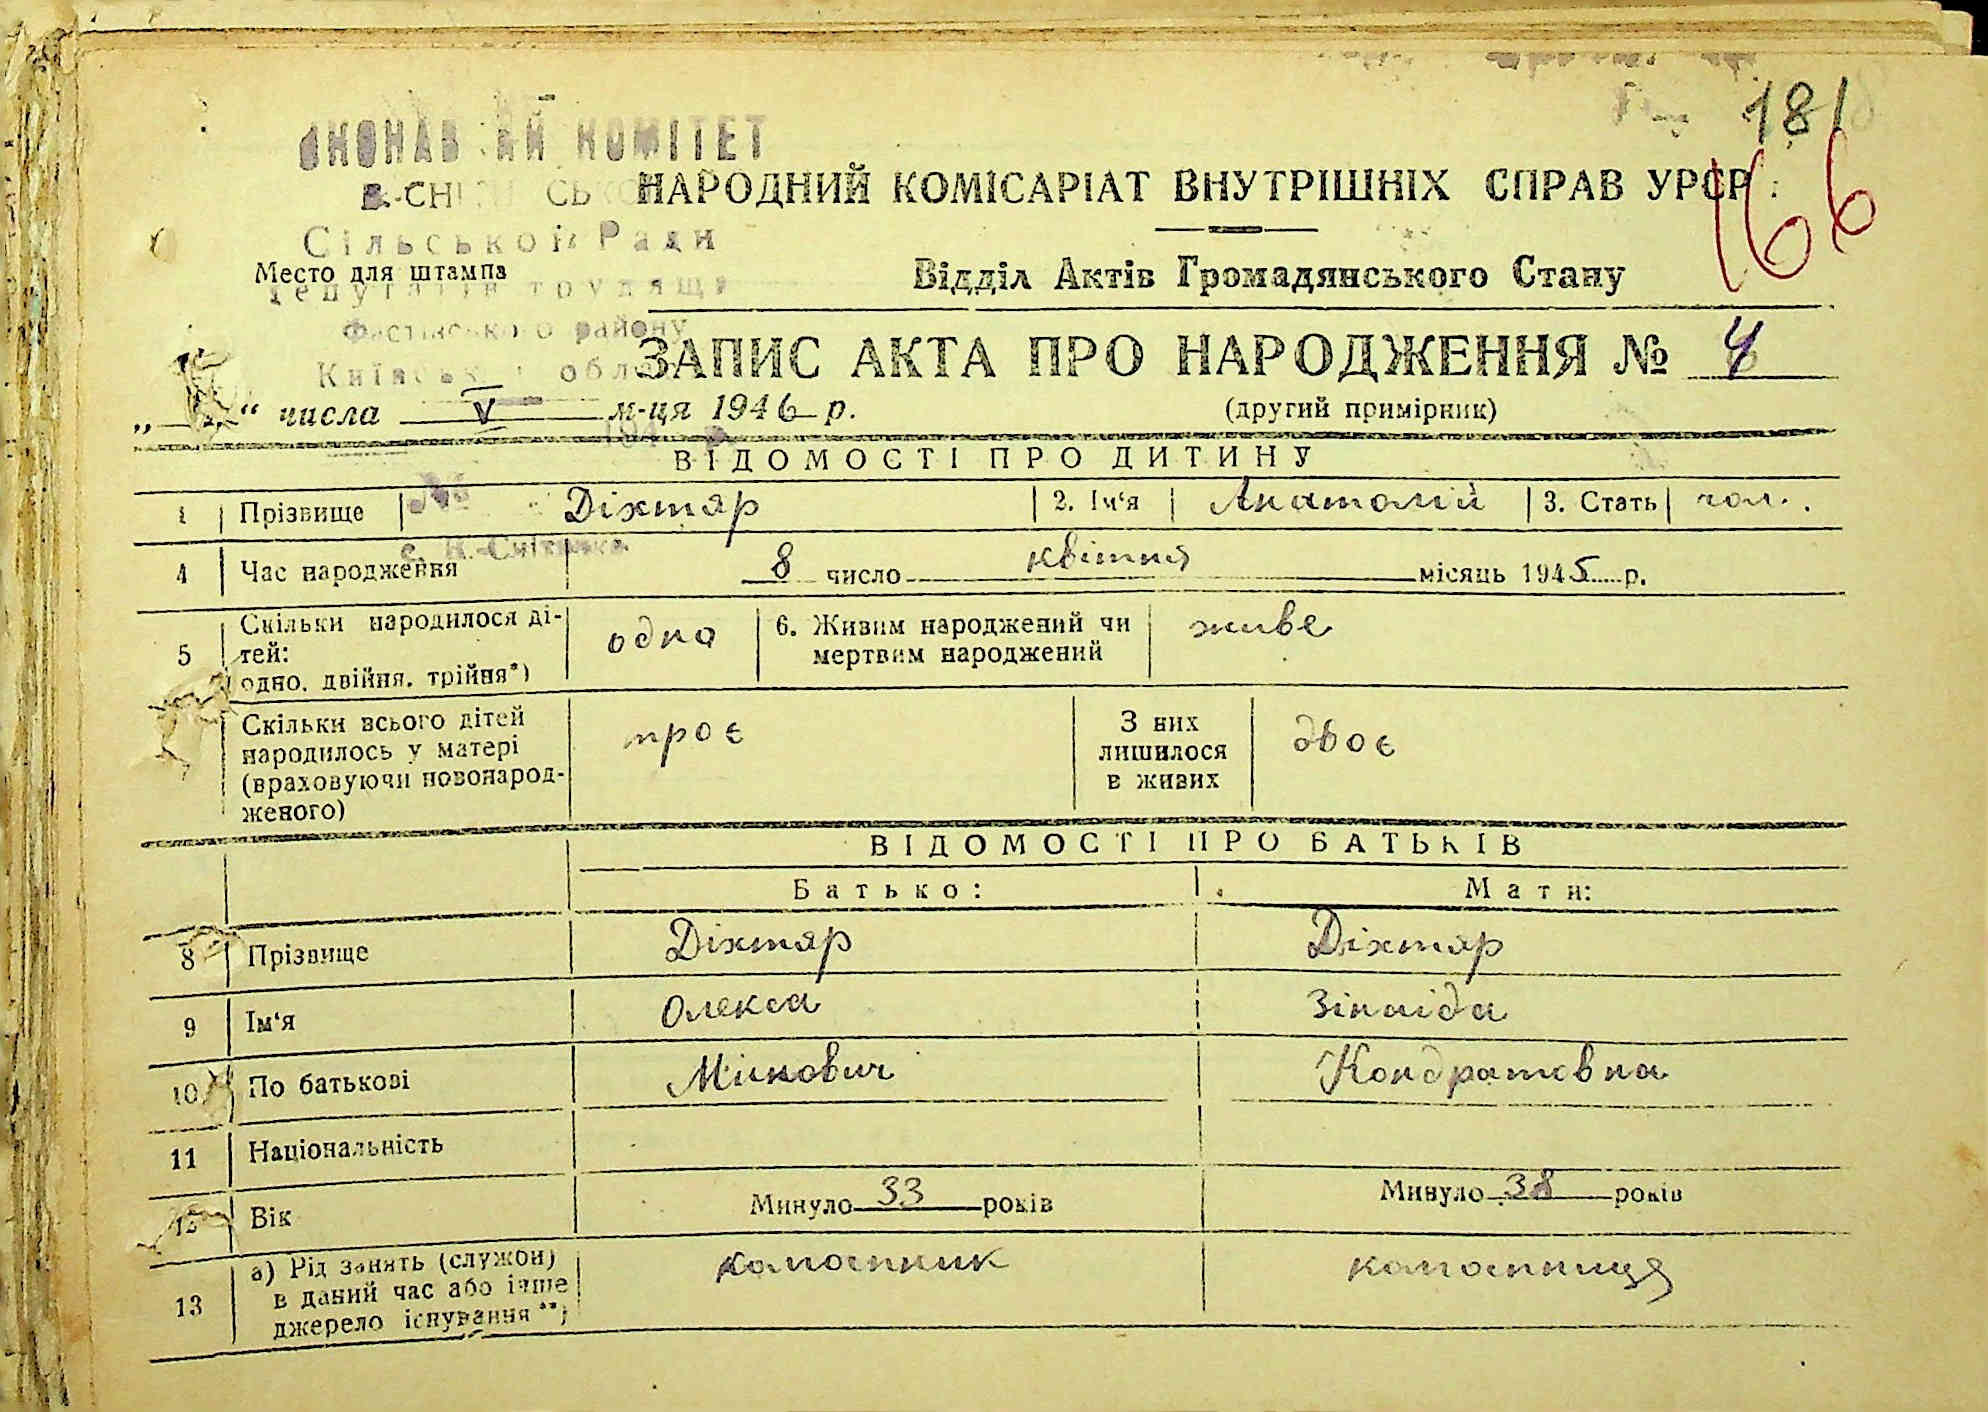 181
166
КОМІТЕТ
НАРОДНИЙ КОМІСАРІАТ ВНУТРІШНІХ СПРАВ УРСР
Сільської Ради
Место для штампа
Відділ Актів Громадянського Стану
району
ЗАПИС АКТА ПРО НАРОДЖЕННЯ № 4
„ “ числа V м-ця 1946 р.
(другий примірник)
ВІДОМОСТІ ПРО ДИТИНУ
№
1 Прізвище Діхтяр 2. Ім‘я Анатолій 3. Стать чол.
4 Час народження 8 число квітня місяць 1945 р.
5 Скільки народилося ді-
тей:
одно, двійня, трійня*)
одно
6. Живим народжений чи
мертвим народжений
живе
Скільки всього дітей
народилось у матері
(враховуючи новонарод-
женого)
троє
З них
лишилося
в живих
двоє
ВІДОМОСТІ ПРО БАТЬКІВ
Батько: Мати:
8 Прізвище Діхтяр Діхтяр
9 Ім‘я Олекса Зінаіда
10 По батькові Кондратовна
11 Національність
12 Вік Минуло 33 років Минуло 38 років
13 а) Рід занять (служби)
в даний час або інше
джерело існування**)
колгоспник колгоспниця